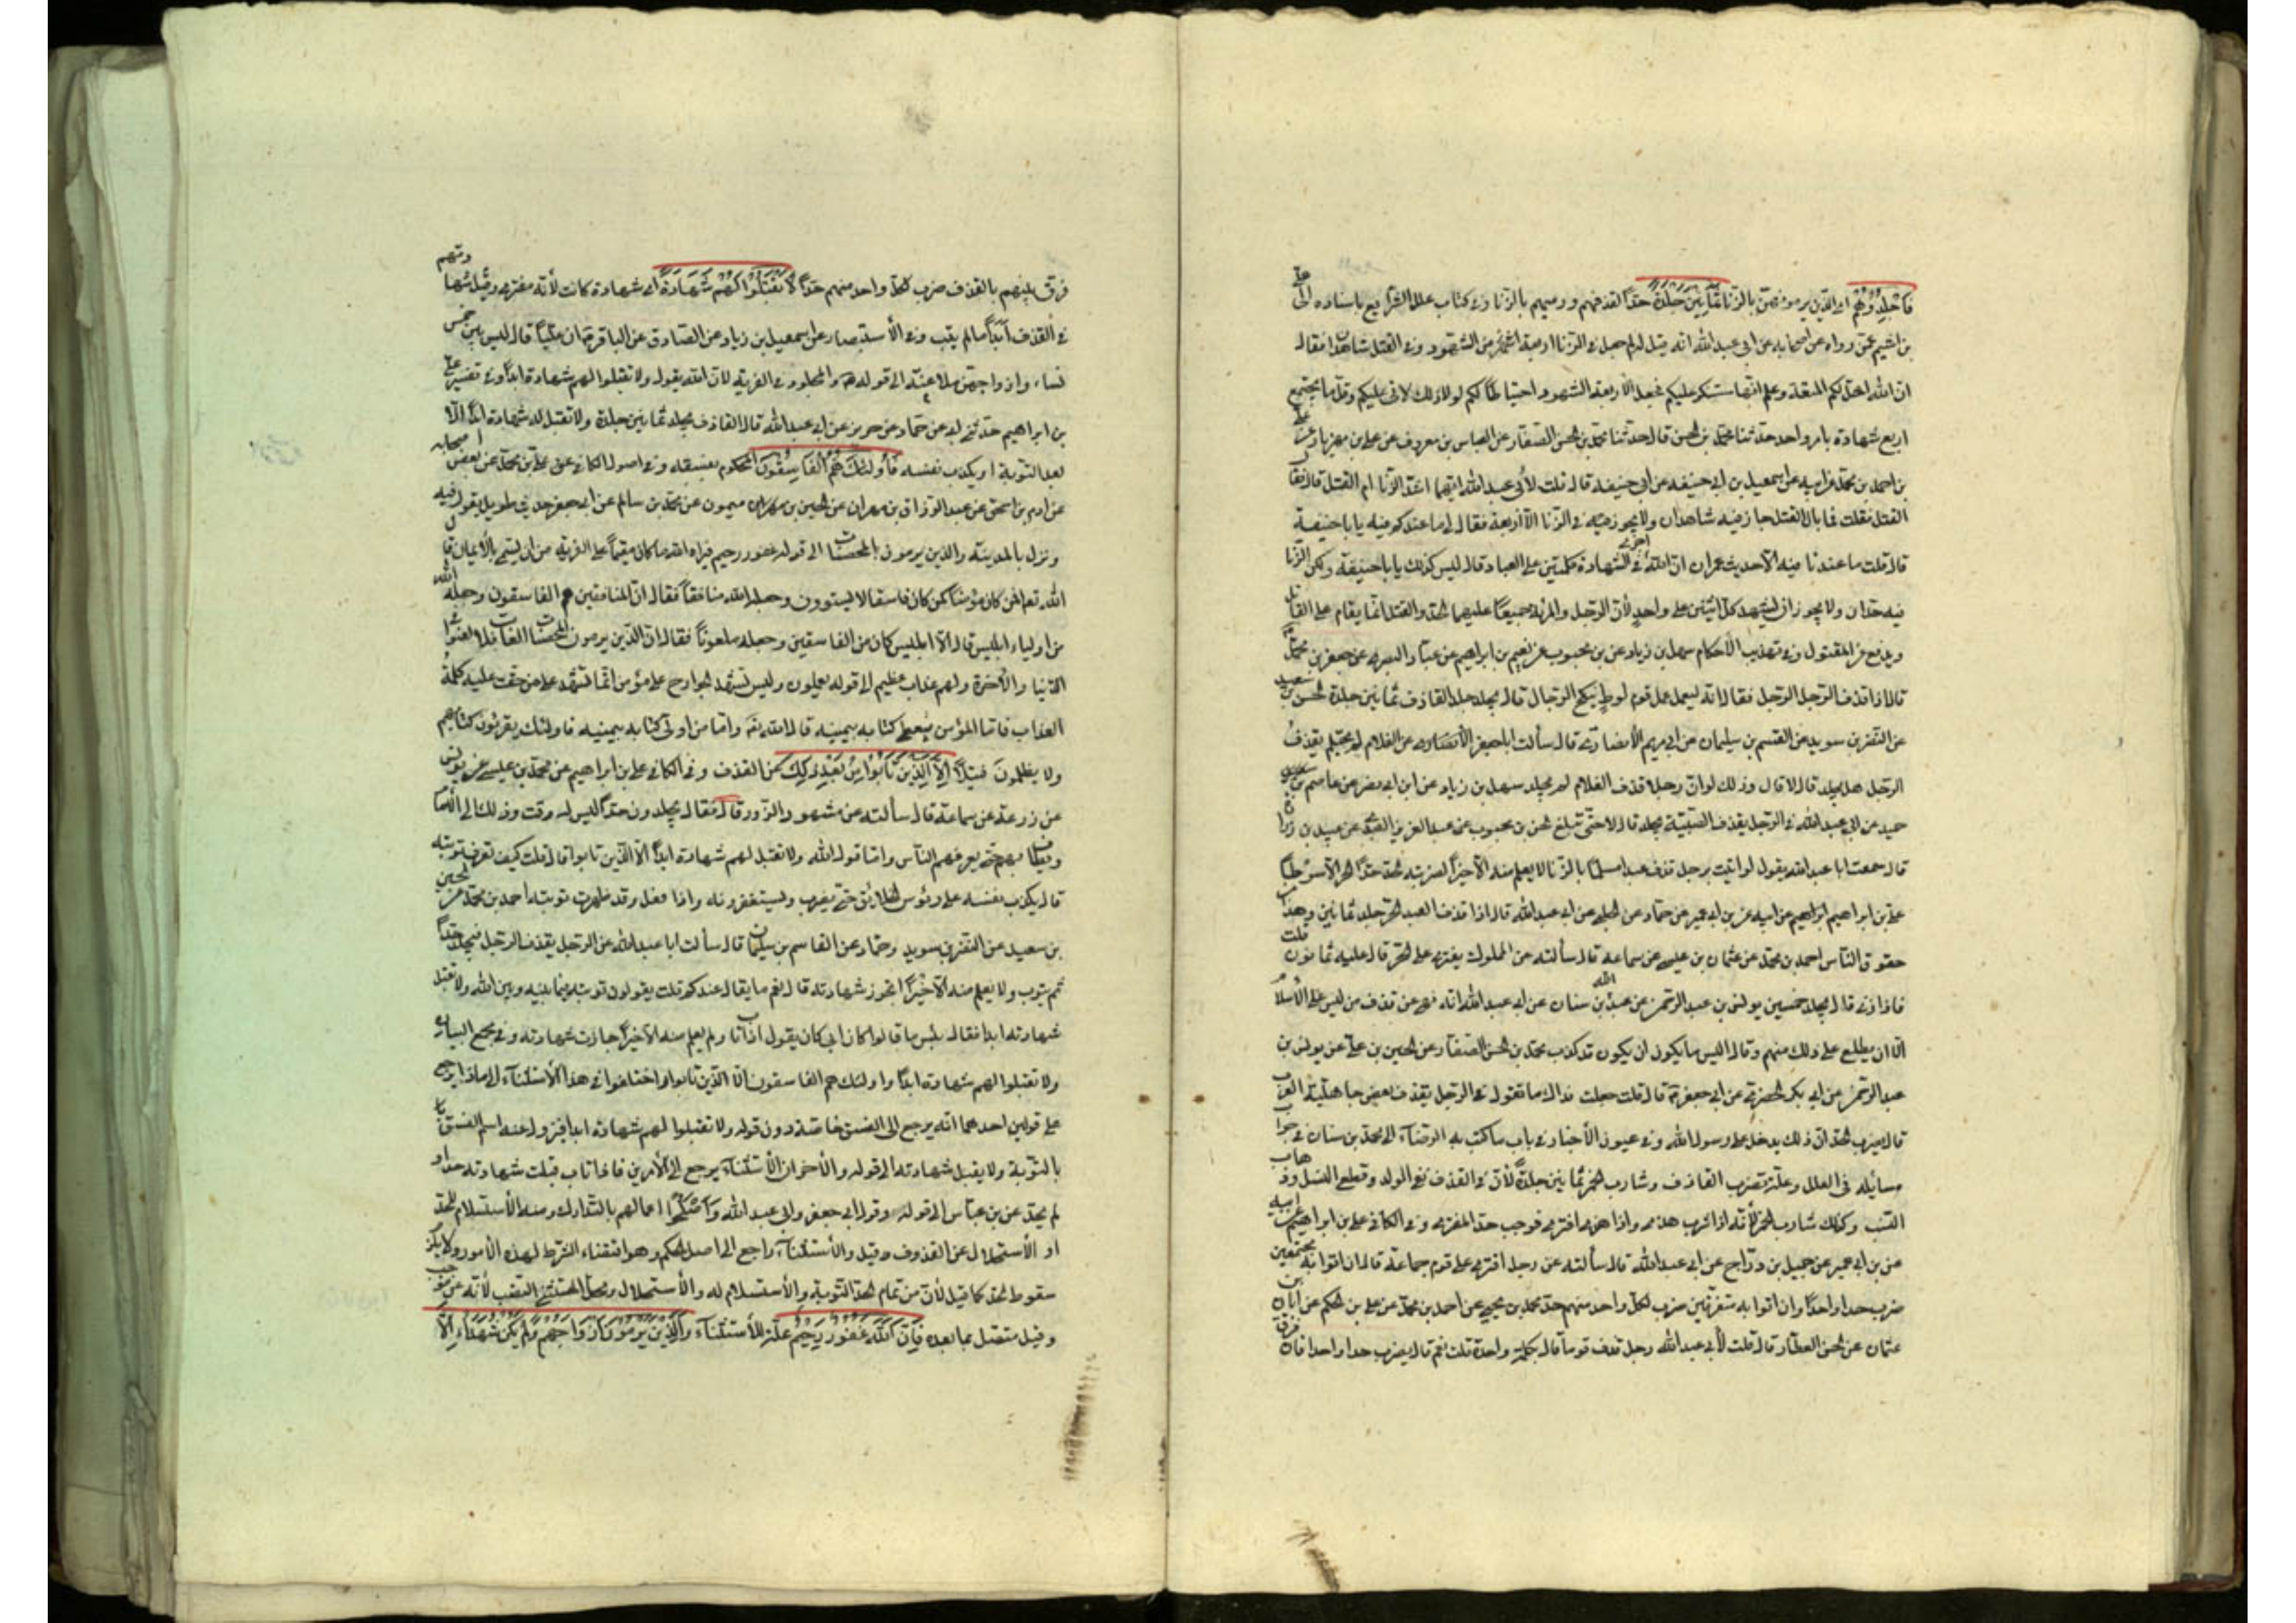 فَاجْلِدُوهُمْ اى الذين يرمونهن بالزنا ثَمَانِينَ جَلْدَةً حدّاً لقذفهم ورميهم بالزنا وفى كتاب علل الشرايع باسناده الى على
بن اشيم عمن رواه من اصحابه عن ابى عبد الله انه قيل له لم جعل فى الزنا اربعة من الشهود وفى القتل شاهدان فقال
ان الله احل لكم المتعة وعلم انها ستنكر عليكم فجعل الاربعة الشهود احتياطاً لكم لولا ذلك لاتى عليكم وقل ما يجتمع
اربع شهادة بامر واحد حدثنا محمد بن الحسن قال حدثنا محمد بن الحسن الصفار عن العباس بن معروف عن على بن مهزيار عن على
بن احمد بن محمد عن ابيه عن اسمعيل بن ابى حنيفة عن ابى حنيفة قال قلت لأبى عبد الله ايهما اشد الزنا ام القتل قال فقال
القتل فقلت فما بال القتل جاز فيه شاهدان ولا يجوز فى الزنا الا اربعة فقال لى ما عندكم فيه يا با حنيفة
قال قلت ما عندنا فيه الا حديث عمر ان الله اخرج فى الشهادة كلمتين على العباد قال ليس كذلك يا با حنيفة ولكن الزنا
فيه حدان ولا يجوز ان يشهد كل اثنين على واحد لأن الرجل والمرأة جميعا عليهما الحد والقتل انما يقام على القاتل
ويدفع عن المقتول وفى تهذيب الأحكام سهل بن زياد عن بن محبوب عن نعيم بن ابراهيم عن عباد البصرى عن جعفر بن محمد
قال اذا قذف الرجل الرجل فقال انه ليعمل عمل قوم لوط ينكح الرجال قال يجلد حد القاذف ثمانين جلدة الحسن بن سعيد
عن النضر بن سويد عن القسم بن سليمان عن ابى مريم الأنصارى قال سألت ابا جعفر عن الغلام لم يحتلم يقذف
الرجل هل يجلد قال لا قال وذلك لو ان رجلا قذف الغلام لم يجلد سهل بن زياد عن ابن ابى نصر عن عاصم بن
حميد عن ابى عبد الله فى الرجل يقذف الصبية يجلد قال لا حتى تبلغ الحسن بن محبوب عن عبد العزيز العبدى عن عبيد بن زرارة
قال سمعت ابا عبد الله يقول لو اتيت برجل قذف عبدا مسلماً بالزنا لا يعلم منه الا خيراً لضربته الحد حد الحر الا سوطاً
على بن ابراهيم عن ابيه عن بن ابى عمير عن حماد عن الحلبى عن ابى عبد الله قال اذا قذف العبد الحر جلد ثمانين وهذا من
حقوق الناس احمد بن محمد عن عثمان بن عيسى عن سماعة قال سألته عن المملوك يفترى على الحر قال عليه ثمانون قلت
فاذا زنى قال يجلد خمسين يونس بن عبد الرحمن عن عبد الله بن سنان عن ابى عبد الله انه نهى عن قذف من ليس على الأسلام
الا ان يطلع على ذلك منهم وقال ايسر ما يكون ان يكون قد كذب محمد بن الحسن الصفار عن الحسين بن على عن يونس بن
عبد الرحمن عن ابى بكر الحضرمى عن ابى جعفر قال قلت جعلت فداك ما تقول فى الرجل يقذف بعض جاهلية العرب
قال يضرب الحد ان ذلك يدخل على رسول الله وفى عيون الأخبار فى باب ما كتب به الرضا الى محمد بن سنان فى جواب
مسائله فى العلل وعلة ضرب القاذف وشارب الخمر ثمانين جلدة لأن فى القذف نفى الولد وقطع النسل وذهاب
النسب وكذلك شارب الخمر لأنه اذا شرب هذى واذا هذى افترى فوجب حد المفترى وفى الكافى على بن ابراهيم عن ابيه
عن بن ابى عمير عن جميل بن دراج عن ابى عبد الله قال سألته عن رجل افترى على قوم جماعة قال ان اتوا به مجتمعين
ضرب حدا واحداً وان اتوا به متفرقين ضرب لكل واحد منهم حد محمد بن يحيى عن احمد بن محمد عن على بن الحكم عن ابان بن
عثمان عن الحسن العطار قال قلت لأبى عبد الله رجل قذف قوما قال بكلمة واحدة قلت نعم قال يضرب حدا واحدا فان فرق
فرق بينهم بالقذف ضرب لكل واحد منهم حدّاً لَا تَقْبَلُوا لَهُمْ شَهَادَةً اى شهادة كانت لأنه مفترى وقيل شهادتهم
فى القذف أبداً ما لم يتب وفى الأستبصار عن اسمعيل بن زياد عن الصادق عن الباقر ان علياً قال ليس بين خمس
نساء وازواجهن ملاعنة الى قوله والمجلود فى الفرية لان الله يقول ولا تقبلوا لهم شهادة ابداً وفى تفسير على
بن ابراهيم حدثنى ابى عن حماد عن حريز عن ابى عبد الله قال القاذف يجلد ثمانين جلدة ولا تقبل له شهادة ابداً الا
بعد التوبة او يكذب نفسه فَأُولَئِكَ هُمُ الْفَاسِقُونَ المحكوم بفسقه وفى اصول الكافى عن على بن محمد عن بعض اصحابه
عن ادم بن اسحق عن عبد الرزاق بن مهران عن الحسين بن ميمون عن محمد بن سالم عن ابى جعفر حديث طويل يقول فيه
ونزل بالمدينة والذين يرمون المحصنات الى قوله غفور رحيم فبراه الله ما كان مقيماً على الفرية من ان يسمى بالأيمان قال
الله تعالى افمن كان مؤمناً كمن كان فاسقا لا يستوون وجعله الله منافقاً فقال ان المنافقين هم الفاسقون وجعله الله
من اولياء ابليس قال الا ابليس كان من الفاسقين وجعله ملعوناً فقال ان الذين يرمون المحصنات الغافلات لعنوا فى
الدنيا والأخرة ولهم عذاب عظيم الى قوله يعملون وليس تشهد الجوارح على مؤمن انما تشهد على من حقت عليه كلمة
العذاب فاما المؤمن فيعطى كتابه بيمينه قال الله واما من اوتى كتابه بيمينه فاولئك يقرئون كتابهم
ولا يظلمون فتيلاً إِلَّا الَّذِينَ تَابُوا مِنْ بَعْدِ ذَلِكَ عن القذف وفى الكافى على بن ابراهيم عن محمد بن عيسى عن يونس
عن زرعة عن سماعة قال سألته عن مشهود الزور قال فقال يجلدون حداً ليس له وقت وذلك الى الأمام
ويطاف بهم حتى يعرفهم الناس واما قول الله ولا تقبل لهم شهادة ابداً الا الذين تابوا قال قلت كيف تعرف توبته
قال يكذب نفسه على رؤس الخلايق حتى يضرب ويستغفر ربه واذا فعل فقد ظهرت توبته احمد بن محمد عن الحسين
بن سعيد عن النضر بن سويد وحماد عن القاسم بن سليمان قال سألت ابا عبد الله عن الرجل يقذف الرجل فيجلد حداً
ثم يتوب ولا يعلم منه الا خيراً اتجوز شهادته قال نعم ما يقال عندكم قلت يقولون توبته فيما بينه وبين الله ولا تقبل
شهادته ابدا فقال بئس ما قالوا كان ابى كان يقول اذا تاب ولم يعلم منه الا خيراً جازت شهادته وفى مجمع البيان
ولا تقبلوا لهم شهادة ابداً واولئك هم الفاسقون الا الذين تابوا واختلفوا فى هذا الأستثناء الى ماذا يرجع
على قولين احدهما انه يرجع الى الفسق خاصة دون قوله ولا تقبلوا لهم شهادة ابدا فيزول عنه اسم الفسق
بالتوبة ولا يقبل شهادته الى قوله والأخر ان الأستثناء يرجع الى الأمرين فاذا تاب قبلت شهادته حد او
لم يحد عن بن عباس الى قوله وقول ابى جعفر وابى عبد الله وَأَصْلَحُوا اعمالهم بالتدارك ومنه الأستسلام للحد
او الأستحلال عن المقذوف وقيل والأستثناء راجع الى اصل الحكم وهو اقتضاء الشرط لهذه الأمور ولا يلزم
سقوط الحد كما قيل لأن من تمام الحد التوبة والأستسلام له والأستحلال ومحل المستثنى النصب لأنه عن موجب
وقيل منقطع متصل بما بعده فَإِنَّ اللَّهَ غَفُورٌ رَحِيمٌ علة للأستثناء وَالَّذِينَ يَرْمُونَ أَزْوَاجَهُمْ وَلَمْ يَكُنْ شُهَدَاءُ إِلَّا